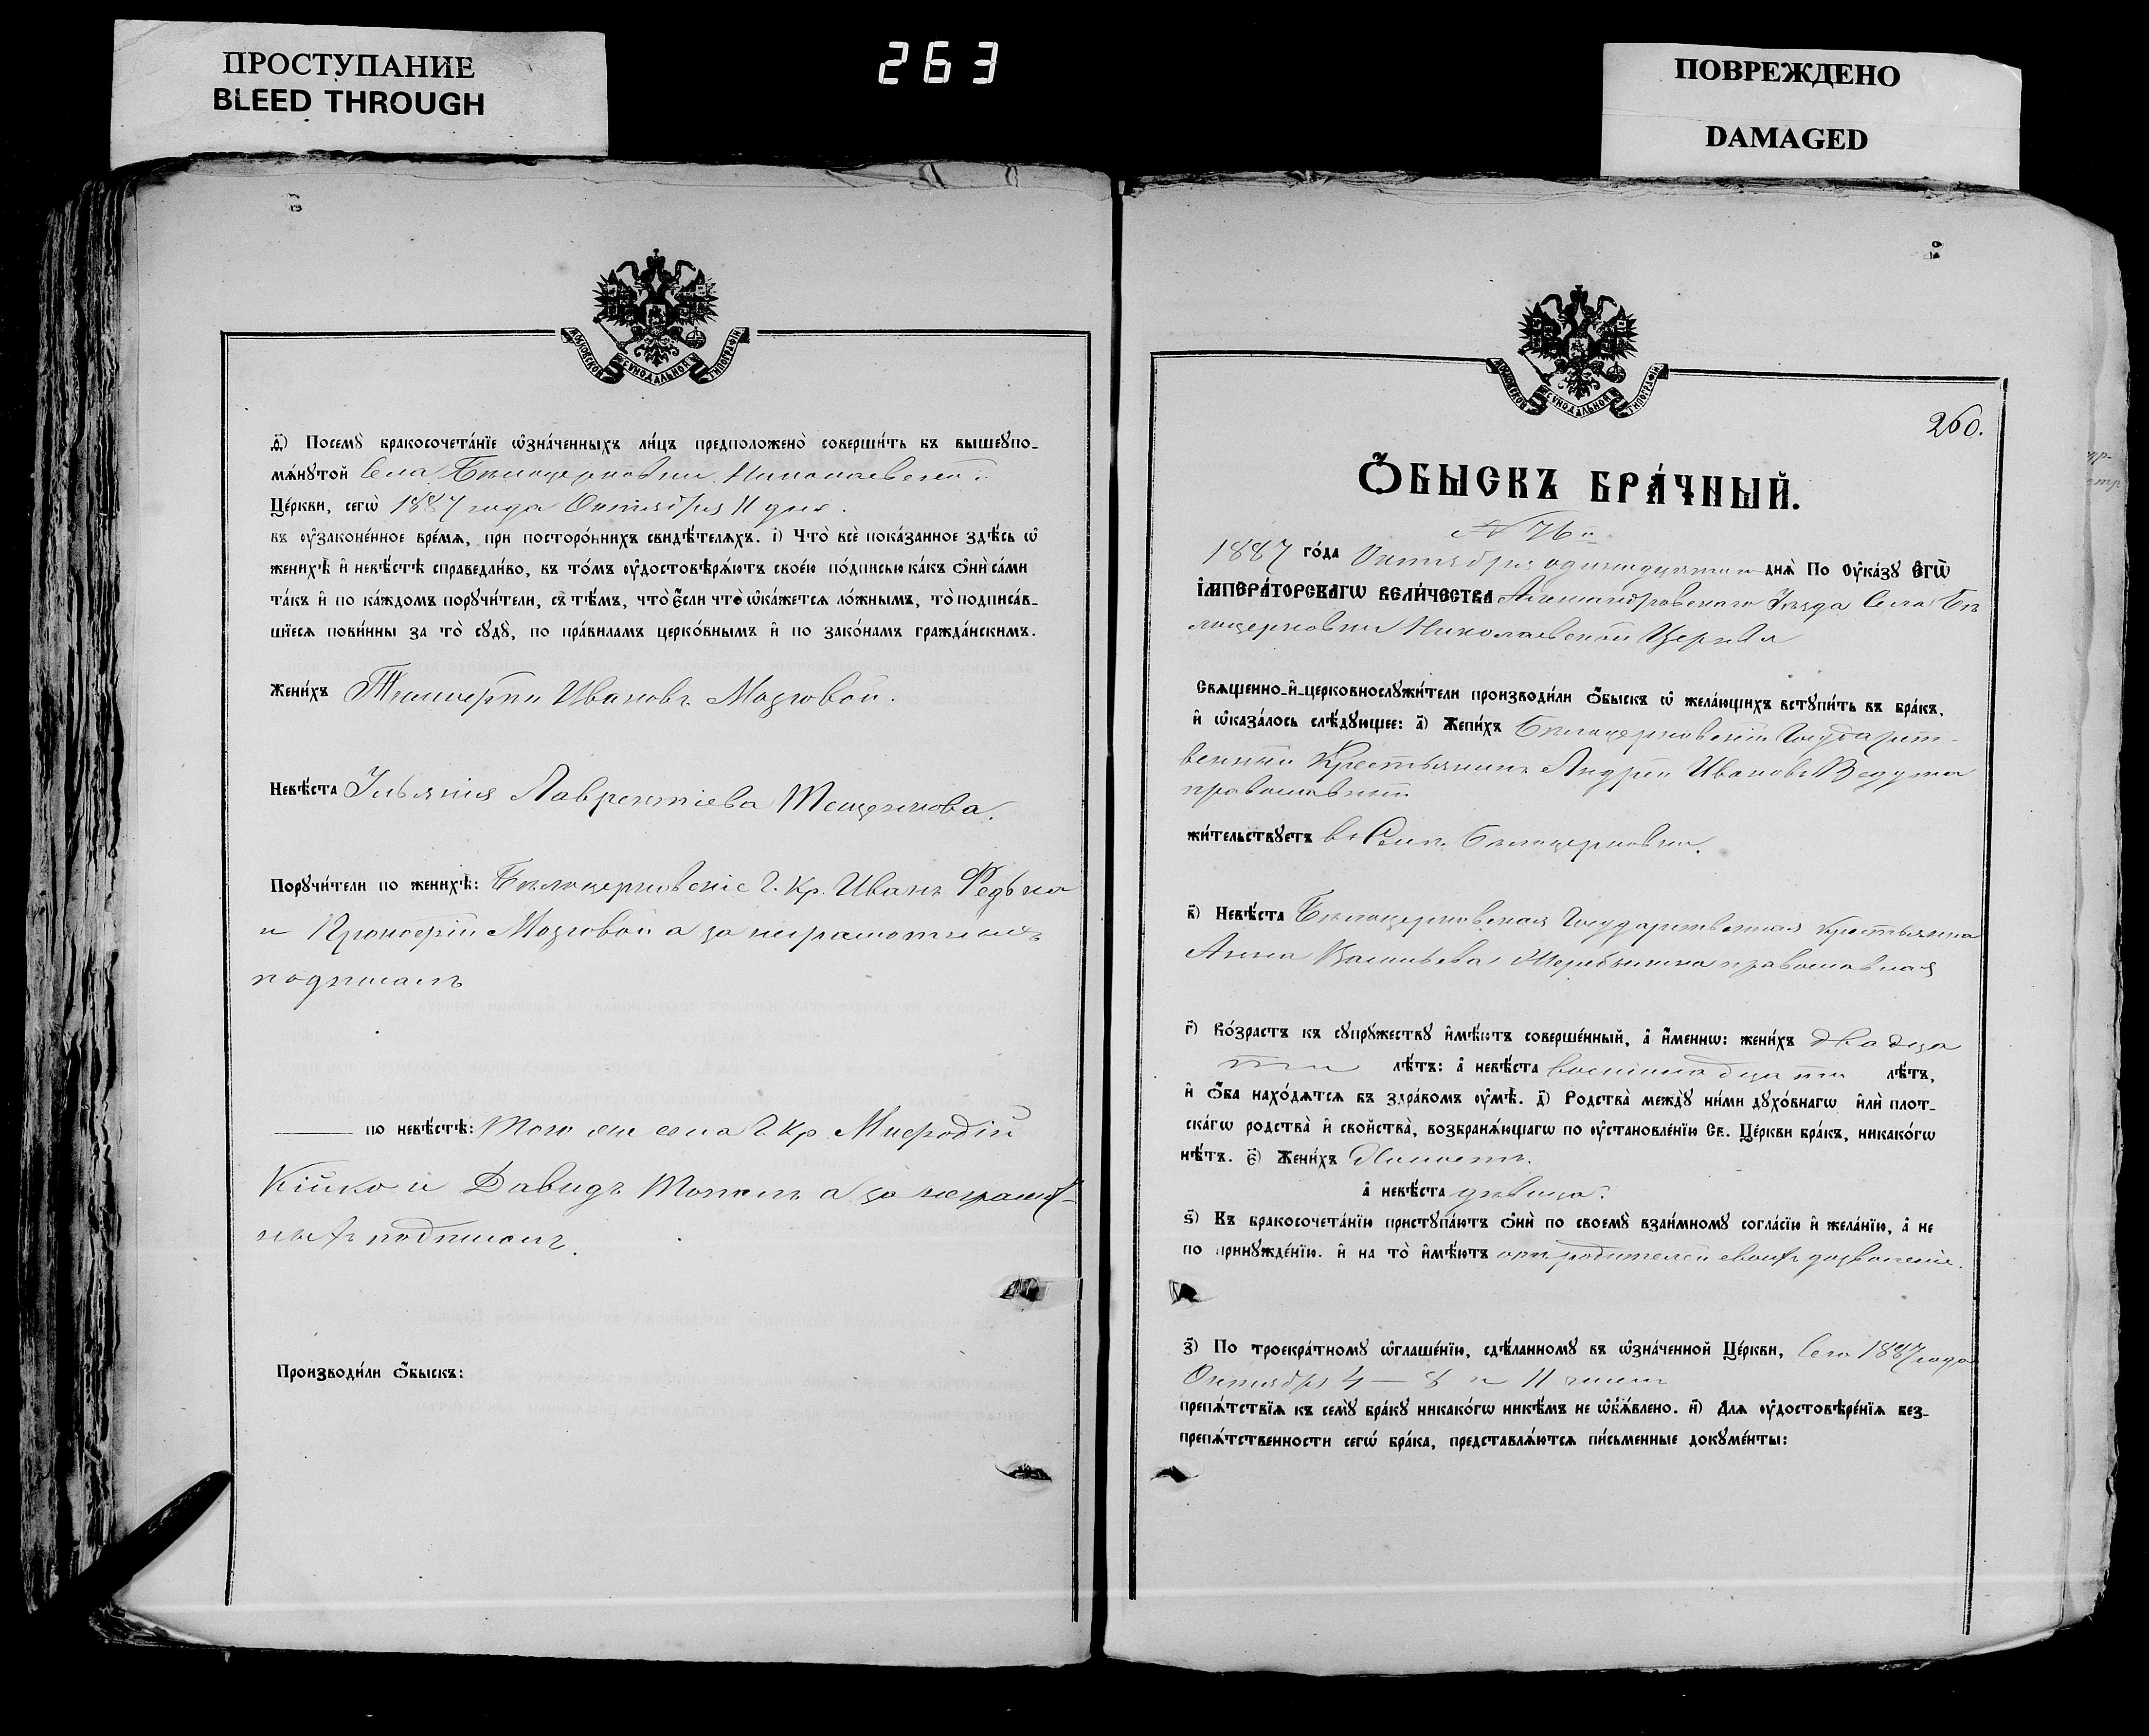 ПРОСТУПАНИЕ
BLEED THROUGH
263
ПОВРЕЖДЕНО
DAMAGED
МОСКОВСКОЙ СѴНОДАЛЬНОЙ ТИПОГРАФІИ
ѳ҃) Посемꙋ̀ бракосочета́нїе ѡ҆зна́ченныхъ ли́цъ предположено̀ соверши́ть въ вышеꙋпо-
мѧ́нꙋтой Села Бѣлоцерковки Николаевской
Це́ркви, сегѡ̀ 1887 года Октября 11 дня.
въ ᲂу҆законе́нное вре́мѧ, при посторо́ннихъ свидѣ́телѧхъ. і҃) Что̀ всѐ пока́занное здѣ́сь ѡ҆
женихѣ̀ и҆ невѣ́стѣ справедли́во, въ то́мъ ᲂу҆достовѣрѧ́ютъ свое́ю по́дписью ка́къ ѻ҆нѝ са́ми
та́къ и҆ по ка́ждомъ порꙋчи́тели, съ тѣ́мъ, что̀ є҆́сли что̀ ѡ҆ка́жетсѧ ло́жнымъ, то̀ подписа́в-
шїесѧ пови́нны за то̀ сꙋдꙋ̀, по пра́виламъ церко́внымъ и҆ по зако́намъ гражда́нскимъ.
Жени́хъ Тимоѳей Ивановъ Мозговой.
Невѣ́ста Ульянія Лаврентіева Тещенкова.
Порꙋчи́тели по женихѣ̀: Бѣлоцерковскіе Г. Кр. Иванъ Редька
и Прокофій Мозговой а за неграмотныхъ
подписалъ
по невѣ́стѣ: Того же села Г. Кр. Мефодій
Кійко и Давидъ а за неграмот-
ныхъ подписалъ.
Производи́ли ѻ҆́быскъ:
МОСКОВСКОЙ СѴНОДАЛЬНОЙ ТИПОГРАФІИ
260.
Ѻ҆БЫСКЪ БРА́ЧНЫЙ.
№ 76й
1887 го́да Октября одинадцятого днѧ̀ По Оу҆ка́зꙋ Є҆ГѠ̀
І҆МПЕРА́ТОРСКАГѠ ВЕЛИ́ЧЕСТВА Александровского Уѣзда Села Бѣ
лоцерковки Николаевской Церкви
Свѧще́нно-и҆-церковнослꙋжи́тели производи́ли ѻ҆́быскъ ѡ҆ жела́ющихъ встꙋпи́ть въ бра́къ,
и҆ ѡ҆каза́лось слѣ́дꙋющее: а҃) Жени́хъ Бѣлоцерковскій Государст-
венный Крестьянинъ Андрей Ивановъ Редька
православный
жи́тельствꙋетъ въ Селѣ Бѣлоцерковки.
в҃) Невѣ́ста Бѣлоцерковская Государственная крестьянка
Анна Васильева православная
г҃) Во́зрастъ къ сꙋпрꙋ́жествꙋ и҆мѣ́ютъ соверше́нный, а҆ и҆́меннѡ: жени́хъ двадца
ти лѣ́тъ: а҆ невѣ́ста восемнадцати лѣ́тъ,
и҆ ѻ҆́ба нахо́дѧтсѧ въ здра́вомъ ᲂу҆мѣ̀. д҃) Родства̀ междꙋ̀ ни́ми дꙋхо́внагѡ и҆лѝ плот-
ска́гѡ родства̀ и҆ сво́йства̀, возбранѧ́ющагѡ по ᲂу҆становле́нїю Св. Це́ркви бра́къ, никако́гѡ
нѣ́тъ. є҃) Жени́хъ Холостъ.
а҆ невѣ́ста дѣвица.
ѕ҃) Къ бракосочета́нїю пристꙋпа́ютъ ѻ҆нѝ по своемꙋ̀ взаи́мномꙋ согла́сїю и҆ жела́нїю, а҆ не
по принꙋжде́нїю. и҆ на то̀ и҆мѣ́ютъ отъ родителей своихъ дозволеніе.
з҃) По троекра́тномꙋ ѡ҆глаше́нїю, сдѣ́ланномꙋ въ ѡ҆зна́ченной Це́ркви, Сего 1887 года
Октября 4 — 8 и 11 чиселъ
препѧ́тствїѧ къ семꙋ̀ бра́кꙋ никако́гѡ никѣ́мъ не ѡ҆б̾ѧ́влено. и҃) Длѧ ᲂу҆достовѣре́нїѧ без-
препѧ́тственности сегѡ̀ бра́ка, представлѧ́ютсѧ пи́сьменные докꙋме́нты: